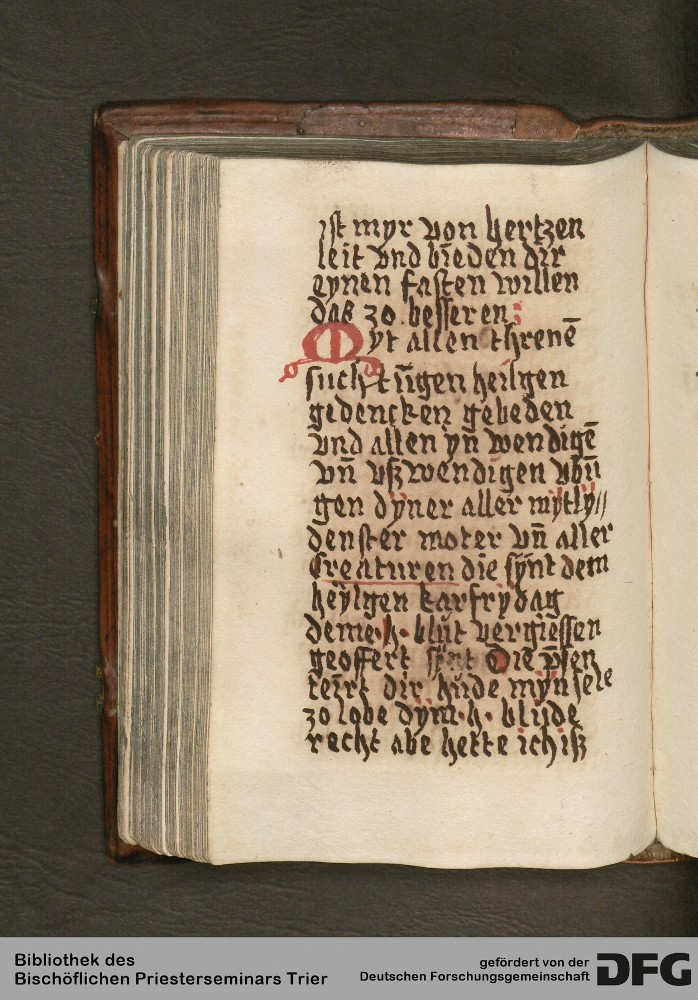 ist myr von hertzen
leit vnd bieden dir
eynen fasten willen
das zo besseren:
Myt allen threnē
sucht ūgen heilgen
gedencken gebeden
vnd allen yn̄ wendigē
vn̄ vßwendigen vbū
gen dÿner aller mÿtly//
denster moter vn̄ aller
Creaturen die sÿnt dem
heÿlgen karfrÿdag
deme·h·blůt vergiessen
geoffert sÿnt Die p̄sen
teirt dir hüde mÿn sele
zo lobe dÿm·h·blůde
recht abe hette ich iß
Bibliothek des
Bischöflichen Priesterseminars Trier
gefördert von der
Deutschen Forschungsgemeinschaft
DFG